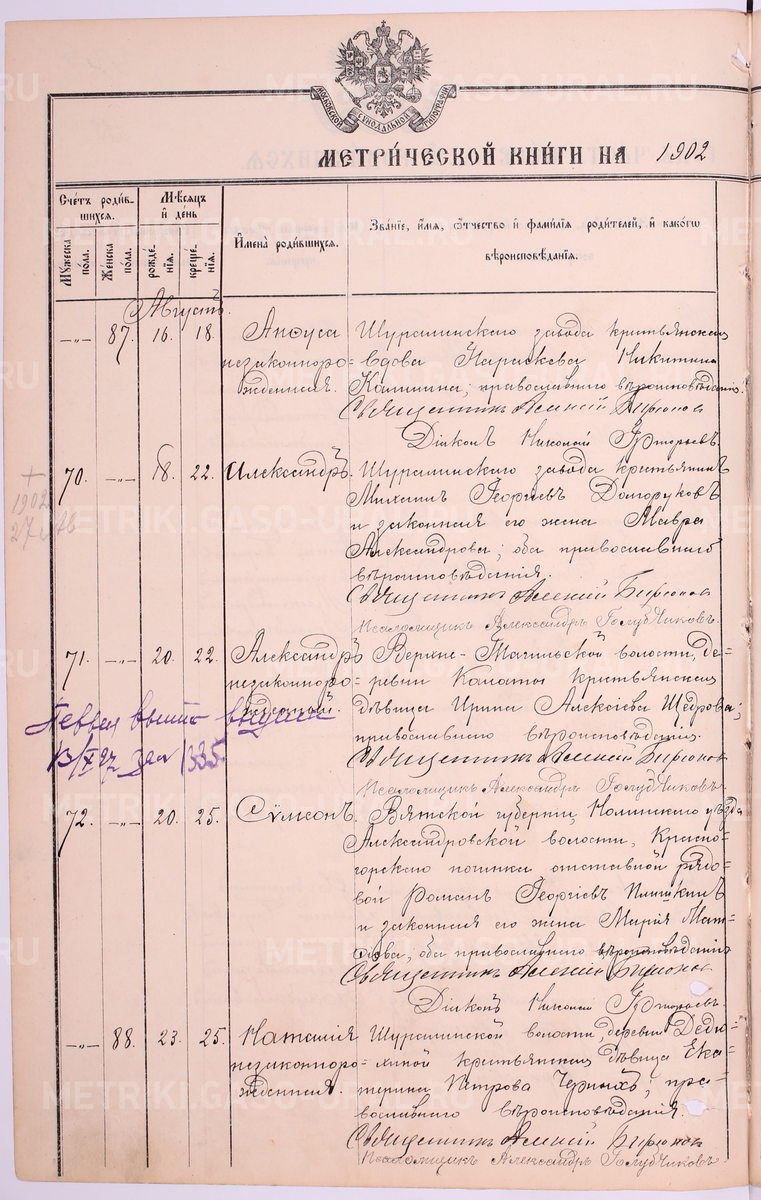 МОСКОВСКОЙ СѴНОДАЛЬНОЙ ТИПОГРАФІИ
МЕТРИ́ЧЕСКОЙ КНИ́ГИ НА 1902
Сче́тъ роди́вшихся.
Му́жеска по́ла.
Же́нска по́ла.
Мѣ́сяцъ и де́нь
рожде́нія.
креще́нія.
И҆мена̀ роди́вшихся.
Зва́ніе, и҆́мя, ѻ҆́тчество и҆ фами́лія роди́телей, и҆ како́гѡ
вѣроисповѣ́данія.
Августъ.
—„— 87. 16. 18. Анѳуса Шуралинскаго завода крестьянская
незаконноро- вдова Параскева Никитина
жденная. Калинина; православнаго вѣроисповѣданія.
Священникъ Алексій Бирюковъ
Діаконъ Николай
70. —„— 18. 22. Александръ. Шуралинскаго завода крестьянинъ
Михаилъ Георгіевъ Долгоруковъ
и законная его жена Мавра
Александрова; оба православнаго
вѣроисповѣданія.
Священникъ Алексій Бирюковъ
Псаломщикъ Александръ Голубчиковъ.
†
1902
27
71. —„— 20. 22. Александръ Верхне-Тагильской волости, де-
незаконноро- ревни Калаты крестьянская
жденный. дѣвица Ирина Алексіева Щедрова;
православнаго вѣроисповѣданія.
Священникъ Алексій Бирюковъ
Псаломщикъ Александръ Голубчиковъ.
выдана
13/X 27 335
72. —„— 20. 25. Сѵмеонъ. Вятской губерніи, Нолинскаго уѣзда
Александровской волости, Красно-
горскаго починка отставной рядо-
вой Романъ Георгіевъ Пашкинъ
и законная его жена Марія Мат-
ѳіева, оба православнаго вѣроисповѣданія
Священникъ Алексій Бирюковъ
Діаконъ Николай
—„— 88. 23. 25. Наталія Шуралинской волости, деревни Дедю-
незаконноро- хиной крестьянская дѣвица Ека-
жденная. терина Петрова Черныхъ; пра-
вославнаго вѣроисповѣданія.
Священникъ Алексій Бирюковъ
Псаломщикъ Александръ Голубчиковъ.
METRIKI.GASO-URAL.RU